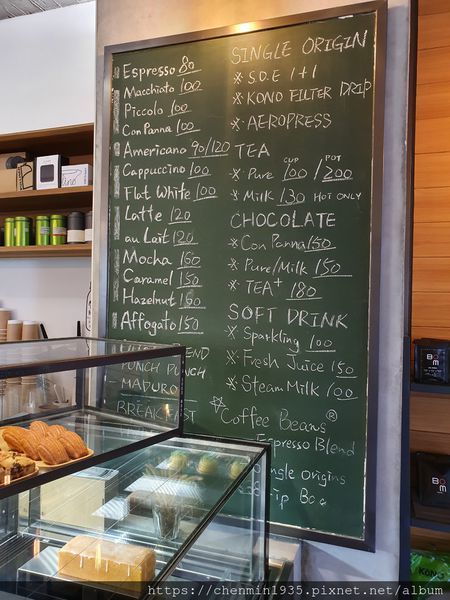 Espresso 80
Macchiato 100
Piccolo 100
Con Panna 100
Americano 90/120
Cappuccino 100
Flat White 100
Latte 120
au Lait 120
Mocha 160
Caramel 150
Hazelnut 160
Affogato 150
BLEND
PUNCH PUNCH
MADURO
BREAKFAST
SINGLE ORIGIN
※ S.O.E 1+1
※ KONO FILTER DRIP
※ AEROPRESS
TEA
CUP POT
※ Pure 100 / 200
※ Milk 130 HOT ONLY
CHOCOLATE
※ Con Panna 150
※ Pure/Milk 150
※ TEA+ 180
SOFT DRINK
※ Sparkling 100
※ Fresh Juice 150
※ Steam Milk 100
☆ Coffee Beans ®
Espresso Blend
Single Origins
BOM
BOM
KONO
https://chenmin1935.pixnet.net/album